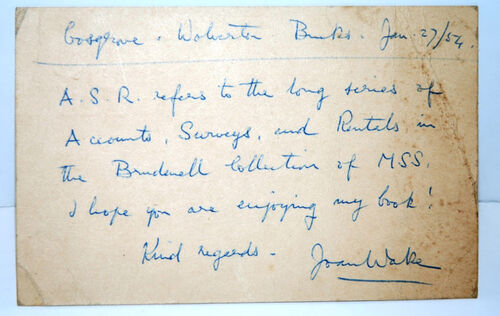 Cosgrove. Wolverton. Bucks. Jan. 27/54.
A.S.R. refers to the long series of
Accounts, Surveys, and Rentals in
the Brudenell Collection of MSS.
I hope you are enjoying my book!
Kind regards - Joan Wake